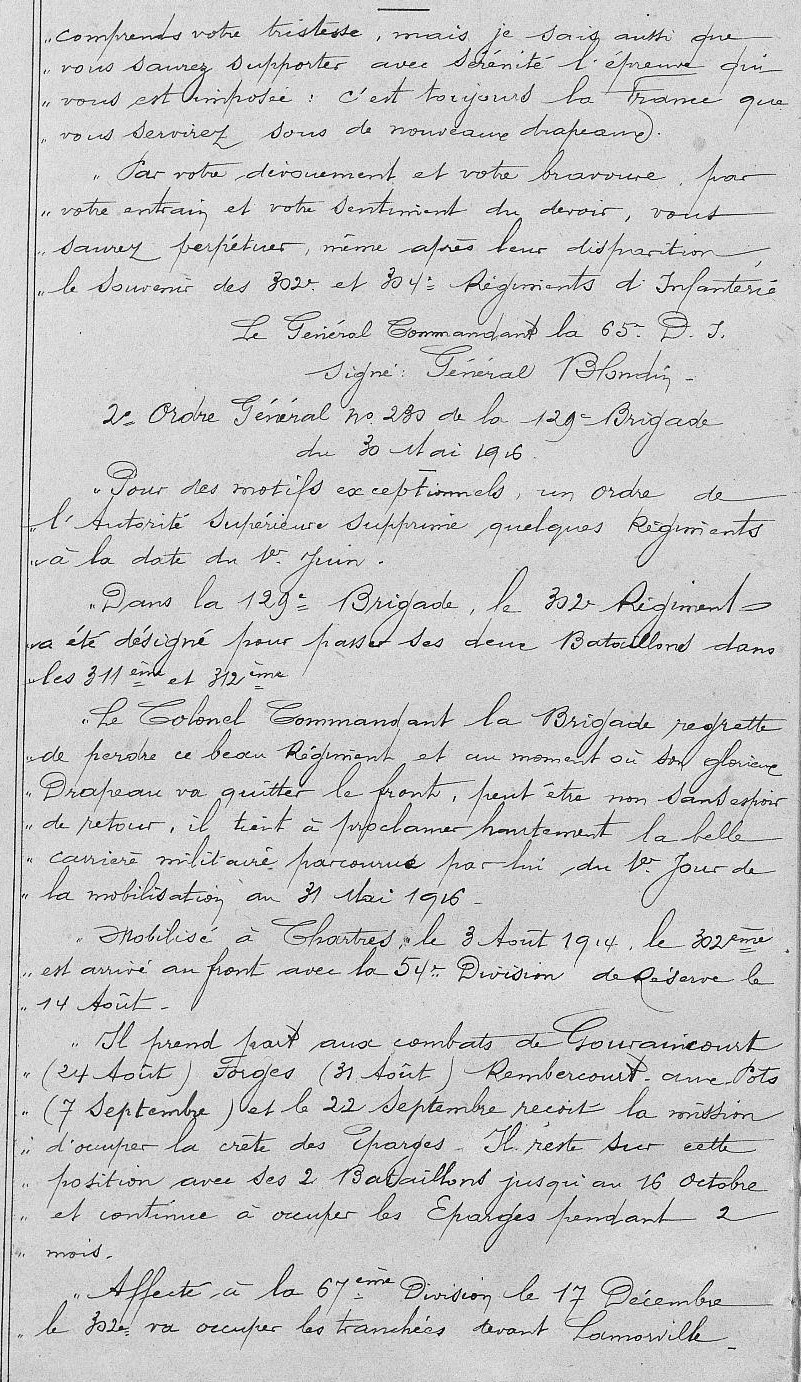 " comprends votre tristesse, mais je sais aussi que
" vous saurez supporter avec sérénité l'épreuve qui
" vous est imposée : c'est toujours la France que
" vous servirez sous de nouveaux drapeaux.
" Par votre dévouement et votre bravoure, par
" votre entrain et votre sentiment du devoir, vous
" saurez perpétuer, même après leur disparition,
" le souvenir des 302e et 304e Régiments d'Infanterie
Le Général Commandant la 65e D. I.
Signé : Général Blondin -
2e Ordre Général No 230 de la 129e Brigade
du 30 Mai 1916.
" Pour des motifs exceptionnels, un ordre de
" l'Autorité Supérieure supprime quelques Régiments
" à la date du 1er Juin.
" Dans la 129e Brigade, le 302e Régiment
" a été désigné pour passer ses deux Bataillons dans
" les 311ème et 312ème
" Le Colonel Commandant la Brigade regrette
" de perdre ce beau Régiment et au moment où son glorieux
" Drapeau va quitter le front, peut être non sans espoir
" de retour, il tient à proclamer hautement la belle
" carrière militaire parcourue par lui du 1er Jour de
" la mobilisation au 31 Mai 1916 -
" Mobilisé à Chartres, le 3 Août 1914, le 302ème
" est arrivé au front avec la 54e Division de Réserve le
" 14 Août -
" Il prend part aux combats de Gouraincourt
" (24 Août) Forges (31 Août) Rembercourt-aux-Pots
" (7 Septembre) et le 22 Septembre reçoit la mission
" d'occuper la crête des Eparges - Il reste sur cette
" position avec ses 2 Bataillons jusqu'au 16 Octobre
" et continue à occuper les Eparges pendant 2
" mois.
" Affecté à la 67ème Division le 17 Décembre
" le 302e va occuper les tranchées devant Lamorville -